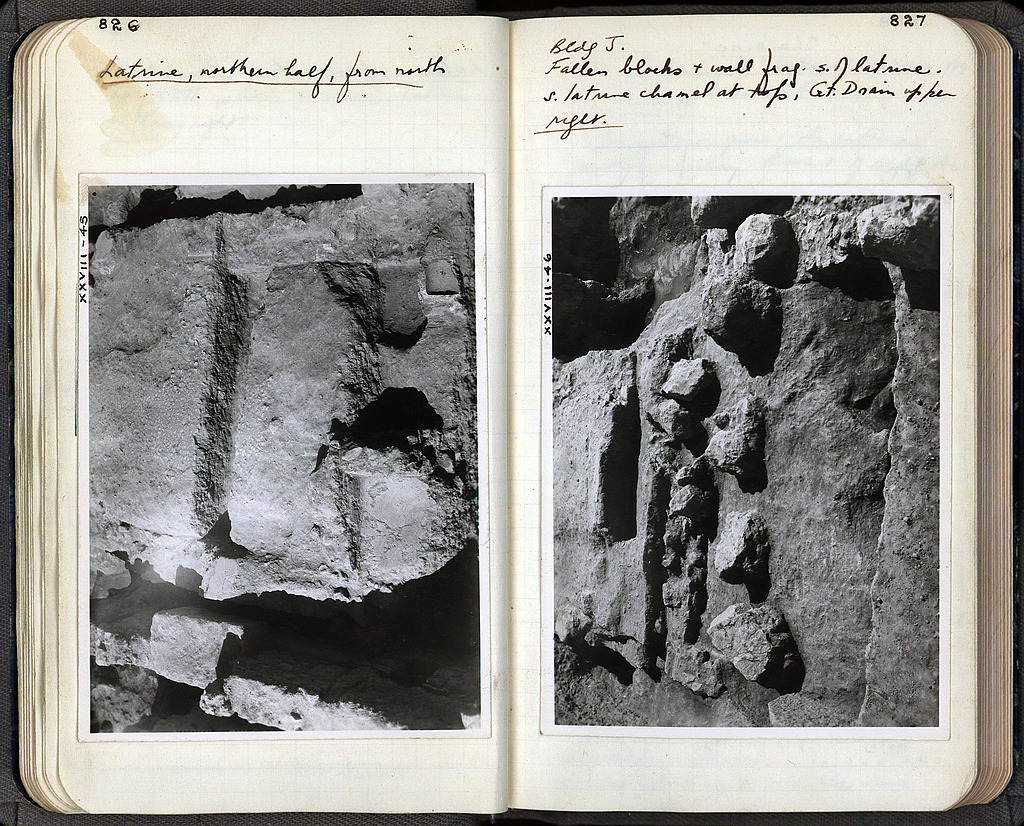 826
Latrine, northern half, from north
XXVIII-45
827
Bldg J.
Fallen blocks + wall frag. s. of latrine.
s. latrine channel at top, Gt. Drain upper
right.
XXVIII-46